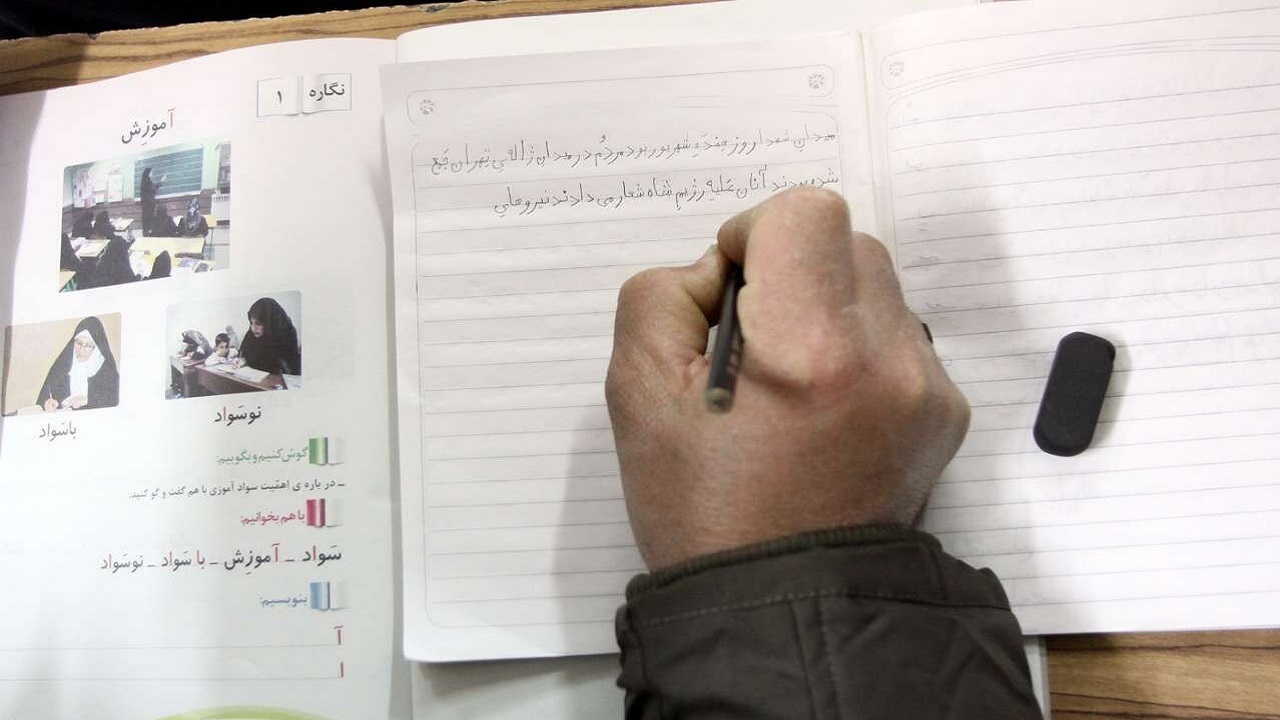 میدان شهدا روز هفدهِ شهریور بود مردُم در میدان ژاله‌ی تهران جَمع
شده بودند آنان عَلیهِ رژیمِ شاه شعار می دادند نیروهای
نگاره ۱
آموزِش
نوسَواد
باسَواد
گوش کنیم و بگوییم:
ـ در باره ی اهمّیت سواد آموزی با هم گفت و گو کنید.
با هم بخوانیم:
سَواد ـ آموزِش ـ با سَواد ـ نوسَواد
بنویسیم:
آ
ا